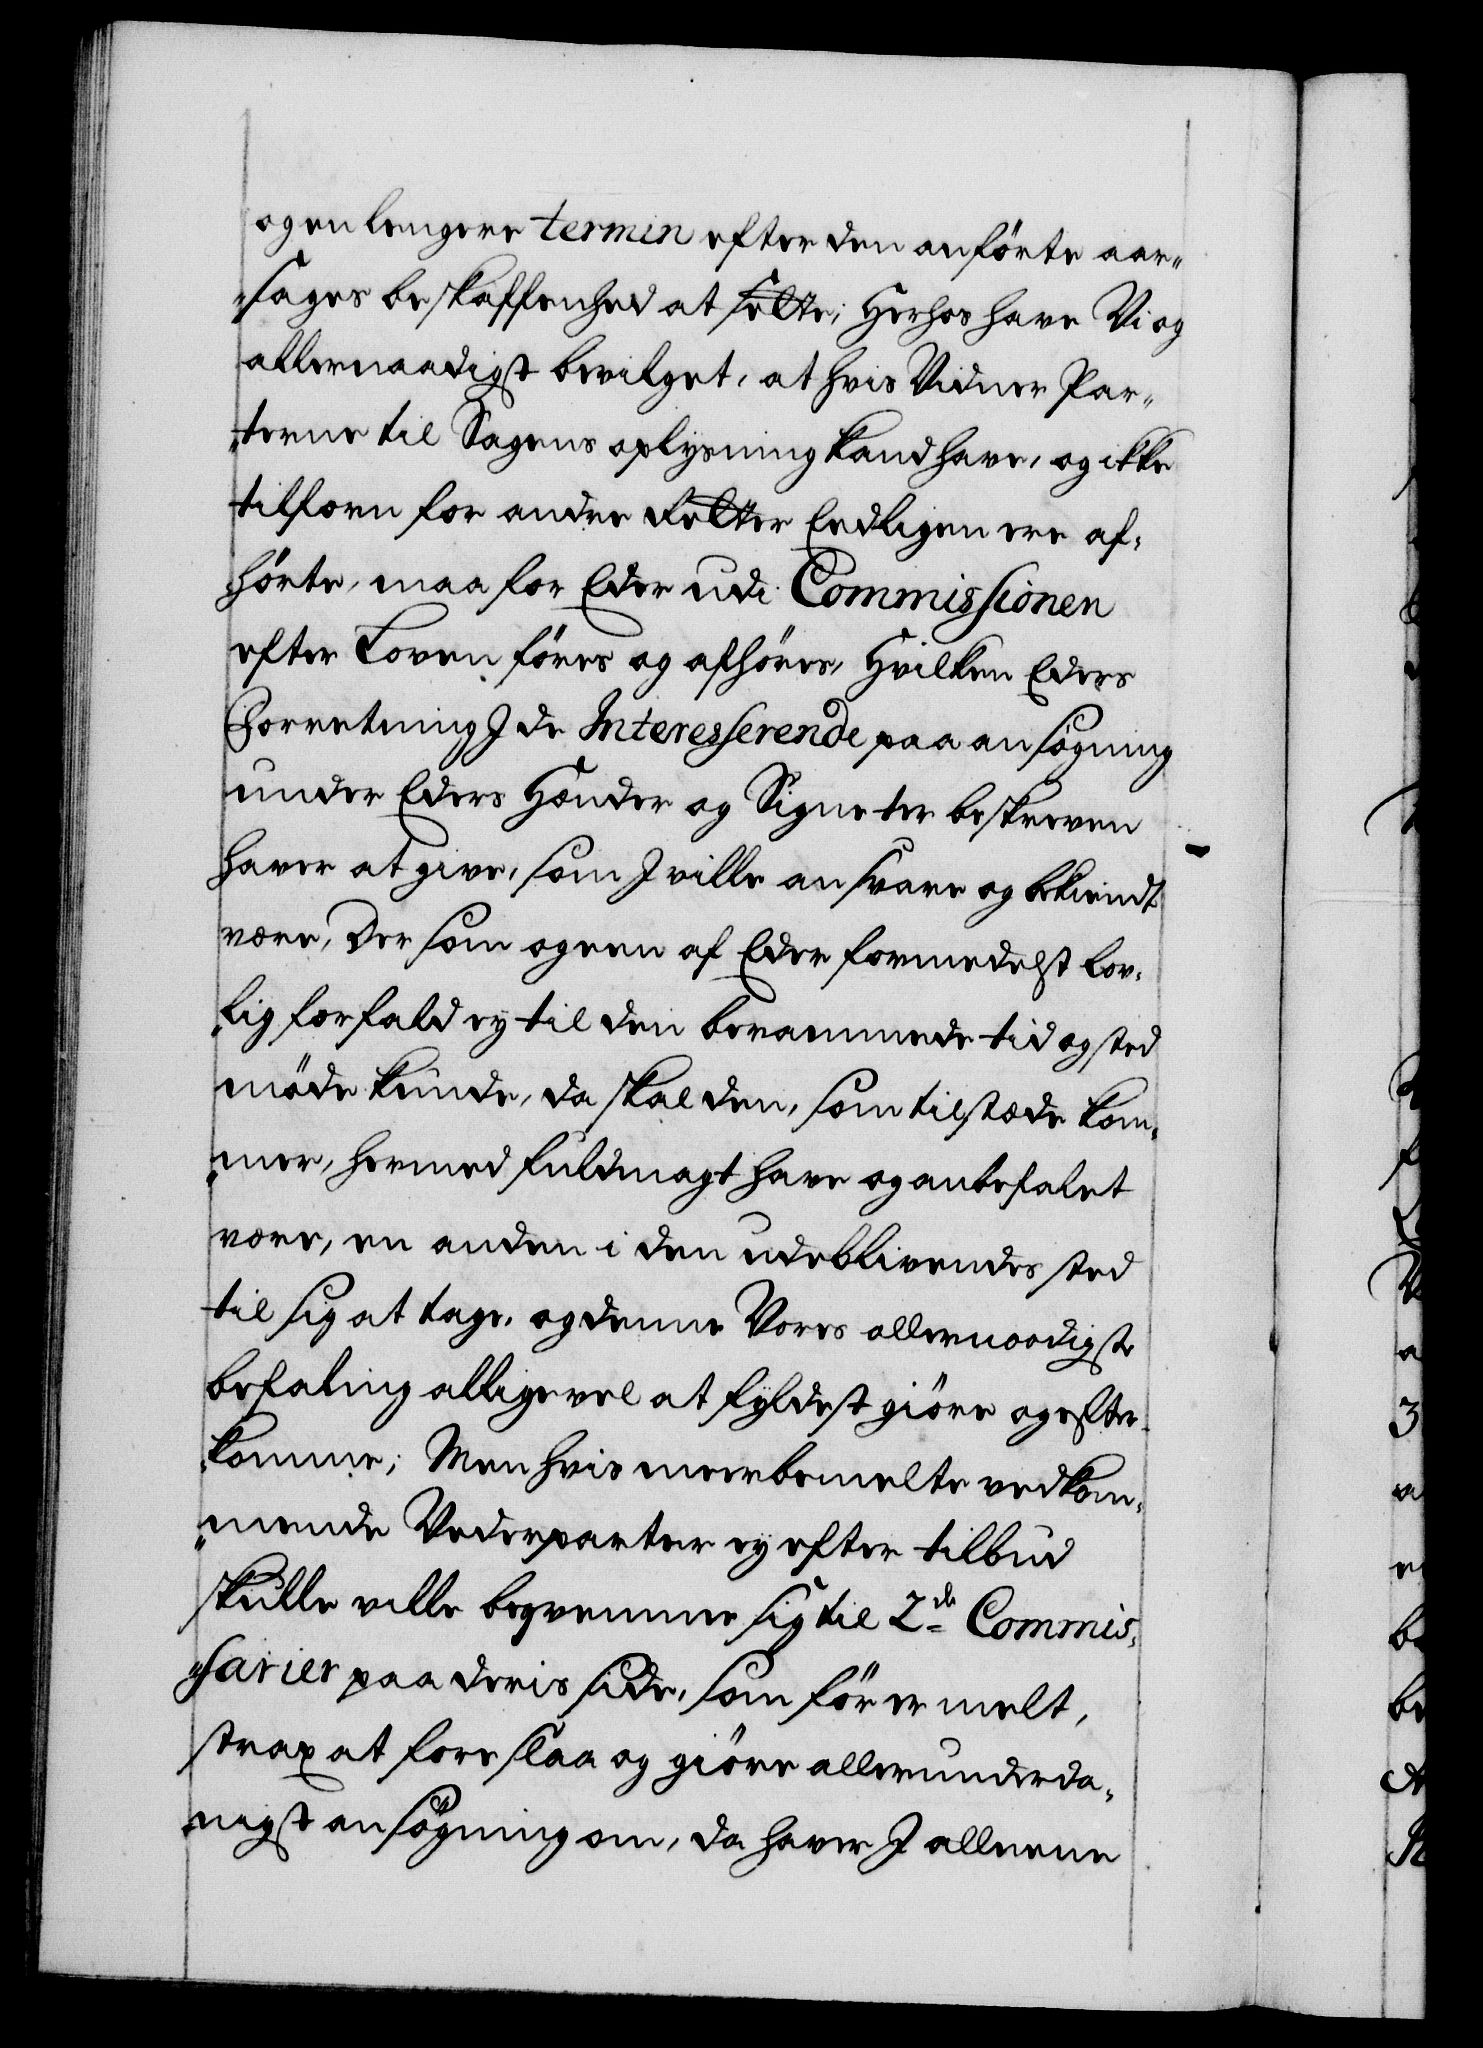 og en lengere termin efter den anförte aar-
sages beskaffenhed at sette; Herhos have Vi og
allernaadigst bevilget, at hvis Vidner Par-
terne til Sagens oplysning kand have, og ikke
tilforn for andre Retter Eedligen ere af-
hörte, maa for Eder udi Commissionen
efter Loven föres og afhöres, Hvilken Eders
Forretning I de Interesserende paa ansögning
under Eders Hænder og Signeter beskreven
haver at give, som I ville ansvare og bekiendt
være, Der som og een af Eder formedelst lov-
lig forfald ey til den berammede tid og sted
möde kunde, da skal den, som tilstæde kom-
mer, hermed fuldmagt have og anbefalet
være, en anden i den udeblivendes sted
til sig at tage, og denne Vores allernaadigste
befaling alligevel at fyldest giöre og efter-
komme; Men hvis meerbemelte vedkom-
mende Vederparter ey efter tilbud
skulle ville beqvemme sig til 2de Commis-
sarier paa deris side, som för er melt,
strax at foreslaa og giöre allerunderda-
nigst ansögning om, da haver I alleene